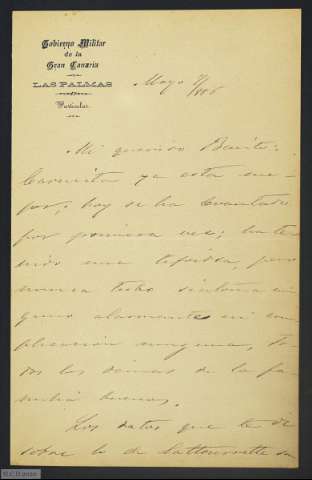 Gobierno Militar
de la
Gran Canaria
LAS PALMAS
Particular.
Mayo 9/886
Mi querido Benito:
Carmita ya está me-
jor, hoy se ha levantado
por primera vez; ha te-
nido una tifoidea, pero
nunca tubo síntoma nin
guno alarmante ni com
plicacion ninguna, to-
dos los demas de la fa-
milia buenos.
Los datos que te dí
sobre lo de